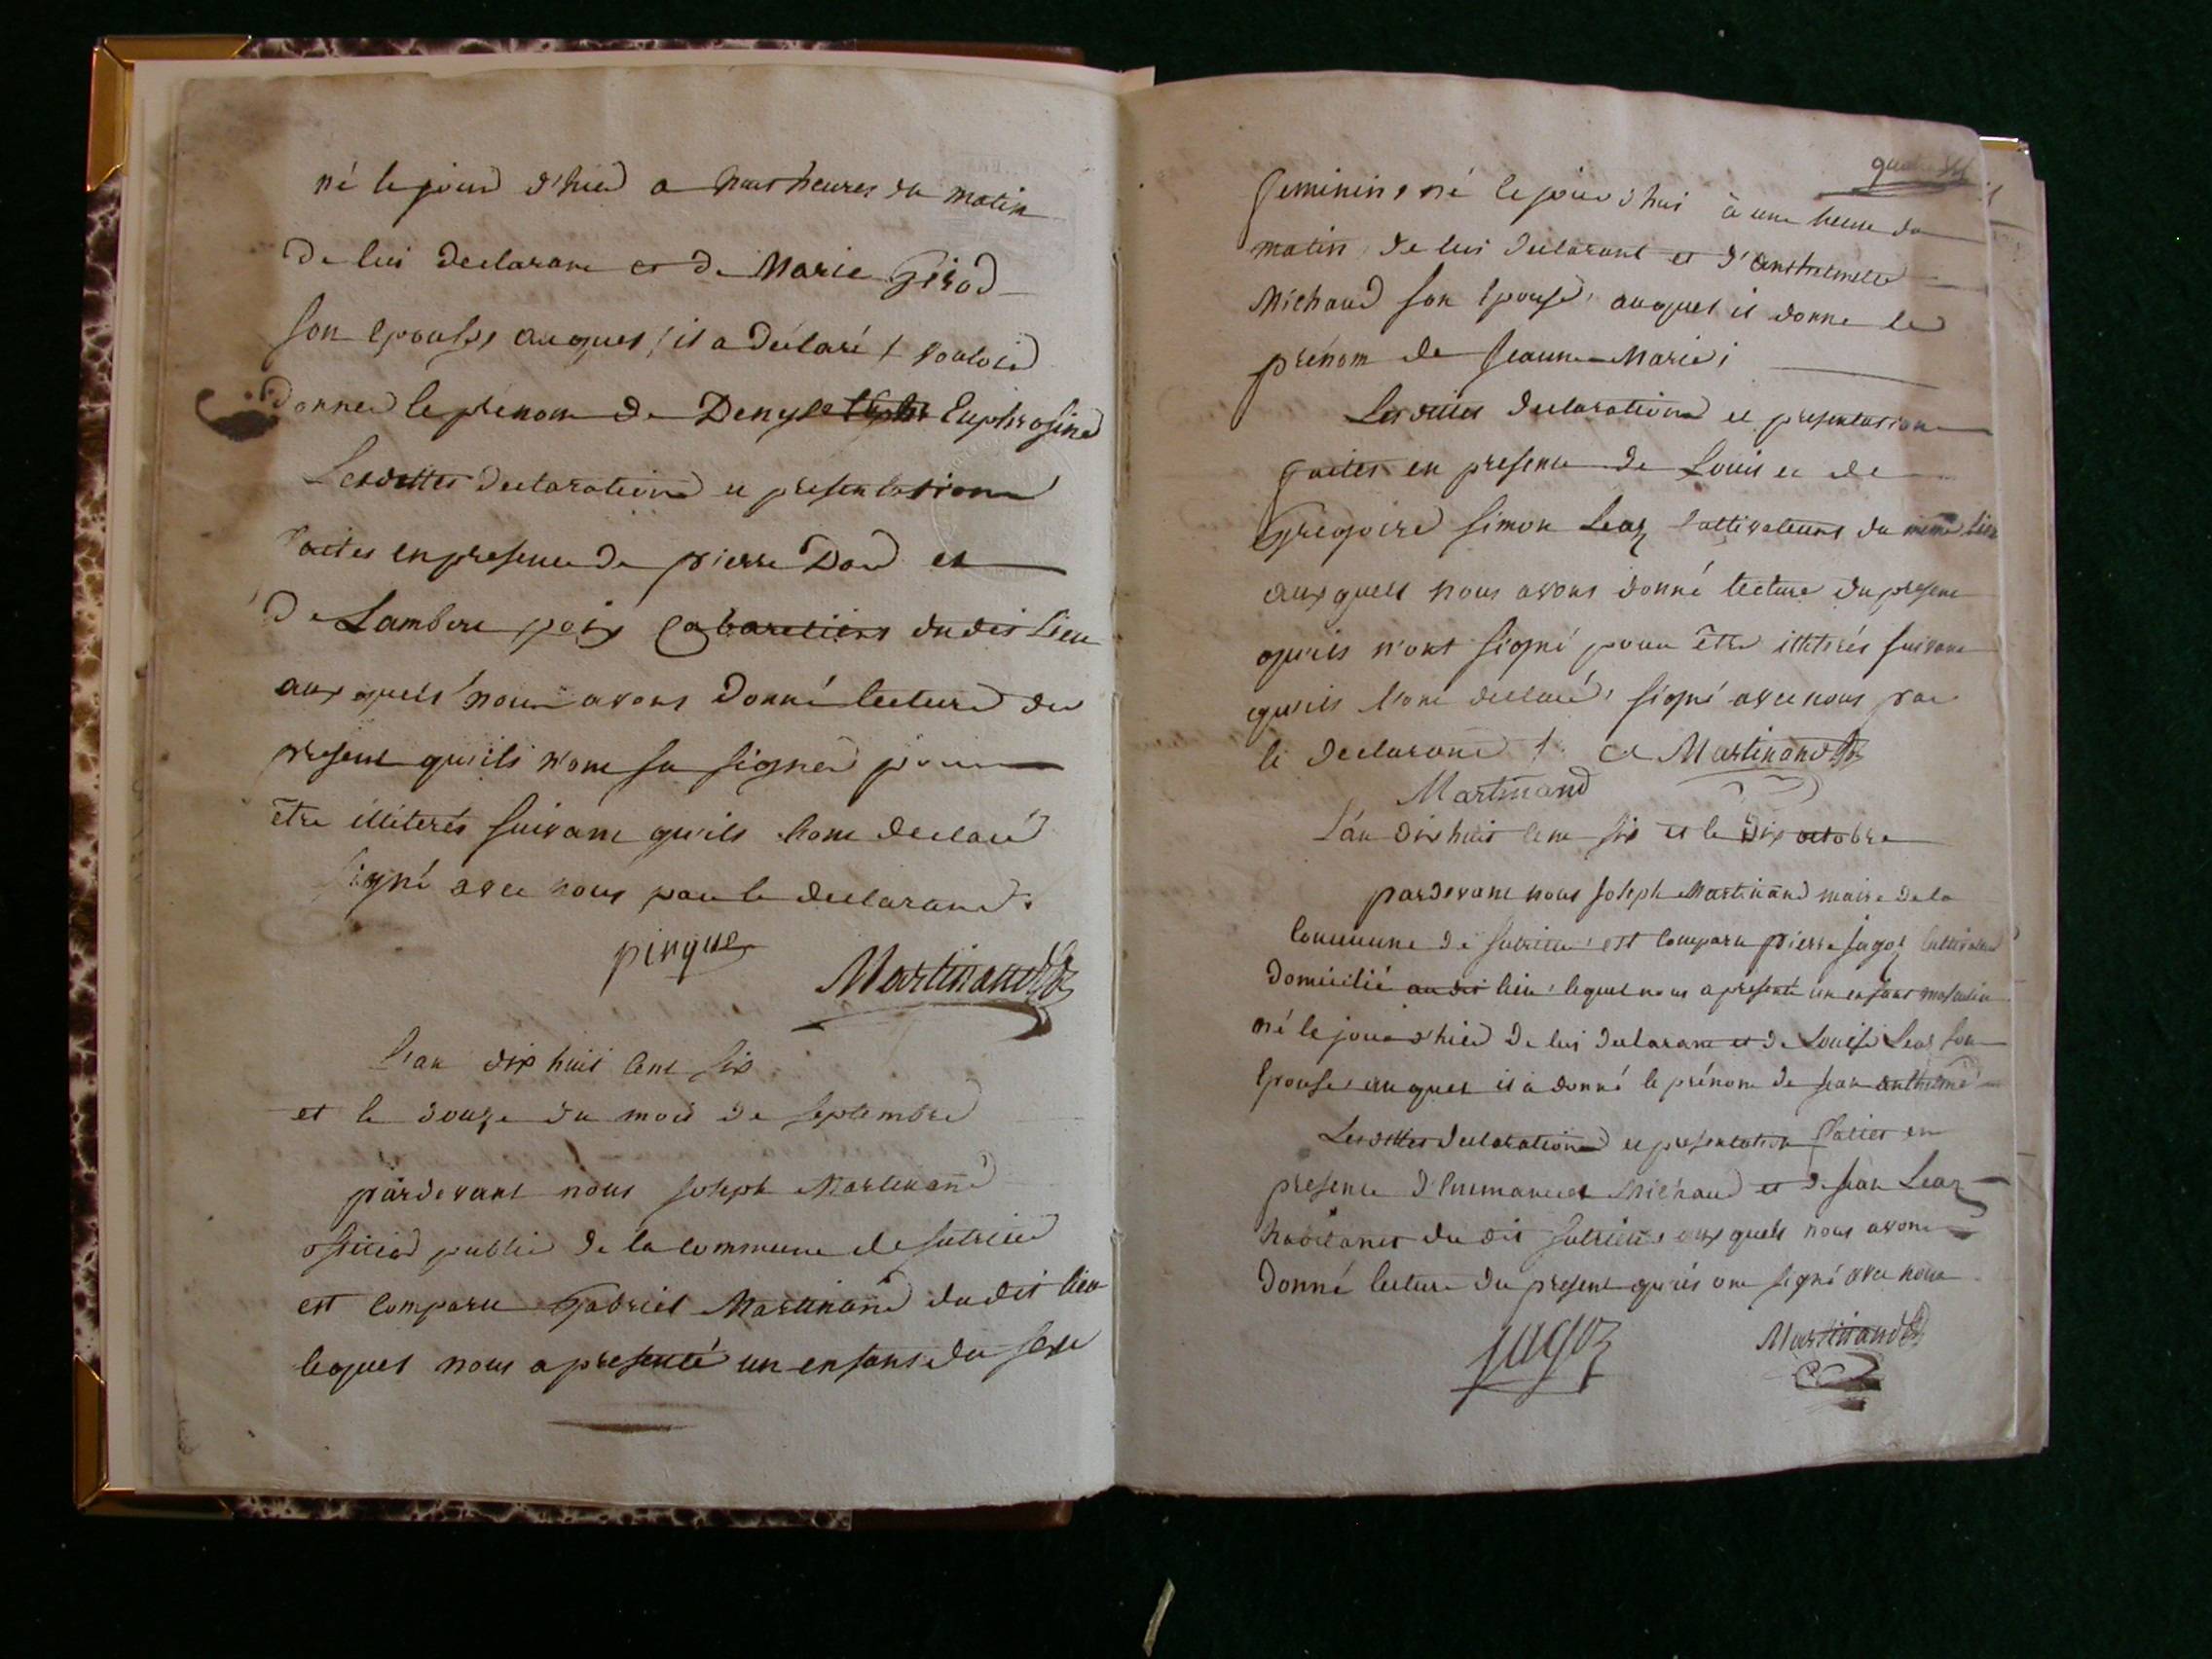 né le jour d'hier a huit heures du matin
De lui declarant et De Marie Girod
son epouse, auquel il a déclaré vouloir
Donner le prénom De Denyse Euphrosine
Lesdittes declaration et presentation
faites en presence De pierre Dord et
De Lambert poix Cabaretiers dudit lieu
auxquels nous avons Donné lecture du
present qu'ils n'ont su signer pour
être illiterés suivant qu'ils l'ont declaré
signé avec nous par le declarant.
pingue
Martinand
L'an dix huit cent six
et le douze du mois de septembre
pardevant nous joseph Martinand
officier public De la commune de sutrieu
est comparu Gabriel Martinand dudit lieu
lequel nous a presenté un enfans du sexe
feminin, né le jour d'hui à une heure du
matin, de lui declarant et d'Anthelmette
Michaud son epouse, auquel il donne le
prénom de jeanne Marie;
Lesdittes declaration et presentation
faites en presence de Louis et de
Gregoire simon Leaz Cultivateurs du meme lieu
auxquels nous avons donné lecture du present
qu'ils n'ont signé pour être illiterés suivant
qu'ils l'ont declaré, signé avec nous par
le declarant Martinand
Martinand
L'an dix huit cent six et le dix octobre
pardevant nous joseph Martinand maire de la
Commune de sutrieu, est comparu pierre jugoz Cultivateur
Domicilié audit lieu, lequel nous a presenté un enfant masculin
né le jour d'hier De lui declarant et De Louise Leaz son
epouse, auquel il a donné le prénom de jean anthelme
Lesdittes declaration et presentation faites en
presence D'emmanuel Michaud et De jean Leaz
habitants du dit sutrieu, auxquels nous avons
Donné lecture du present qu'ils ont signé avec nous
jugoz
Martinand